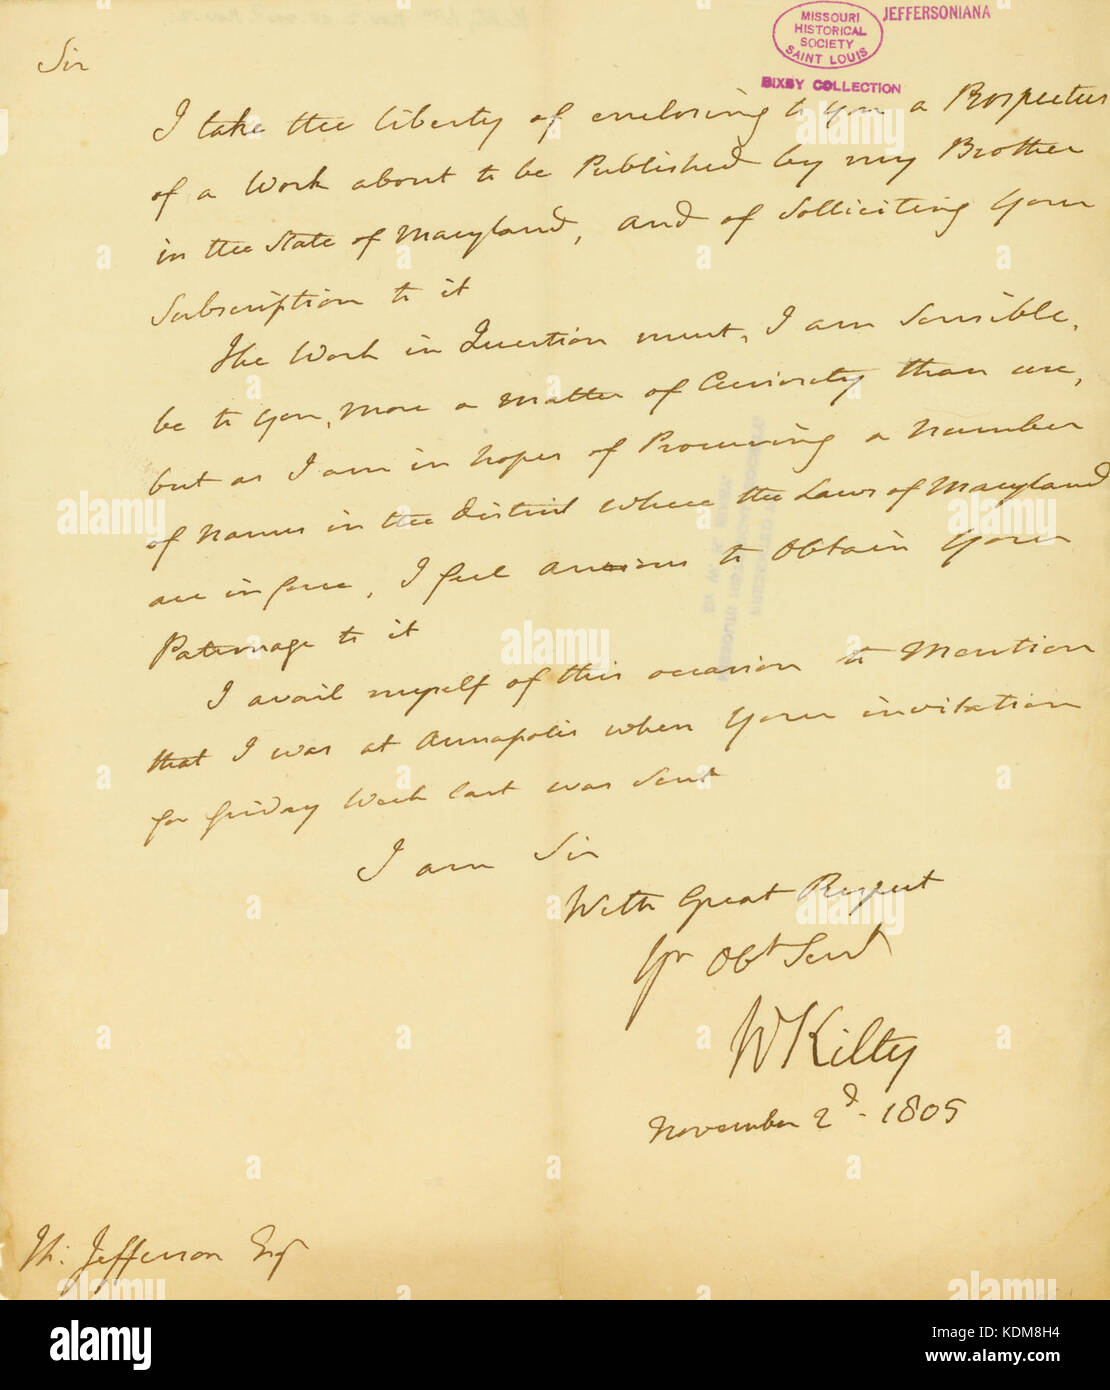 MISSOURI
HISTORICAL
SOCIETY
SAINT LOUIS
JEFFERSONIANA
BIXBY COLLECTION
Sir
I take the liberty of enclosing to you a Prospectus
of a Work about to be Published by my Brother
in the State of Maryland, and of Solliciting Your
Subscription to it
The Work in Question must, I am Sensible,
be to you, more a matter of Curiosity than use,
but as I am in hopes of Procuring a number
of names in the district where the Laws of Maryland
are in force, I feel anxious to Obtain Your
Patronage to it
I avail myself of this occasion to Mention
that I was at Annapolis when Your invitation
for friday Week last was Sent
I am Sir
With Great Respect
Yr Obt Servt
W Kilty
November 2d. 1805
Th: Jefferson Esqr
alamy
Image ID: KDM8H4
www.alamy.com